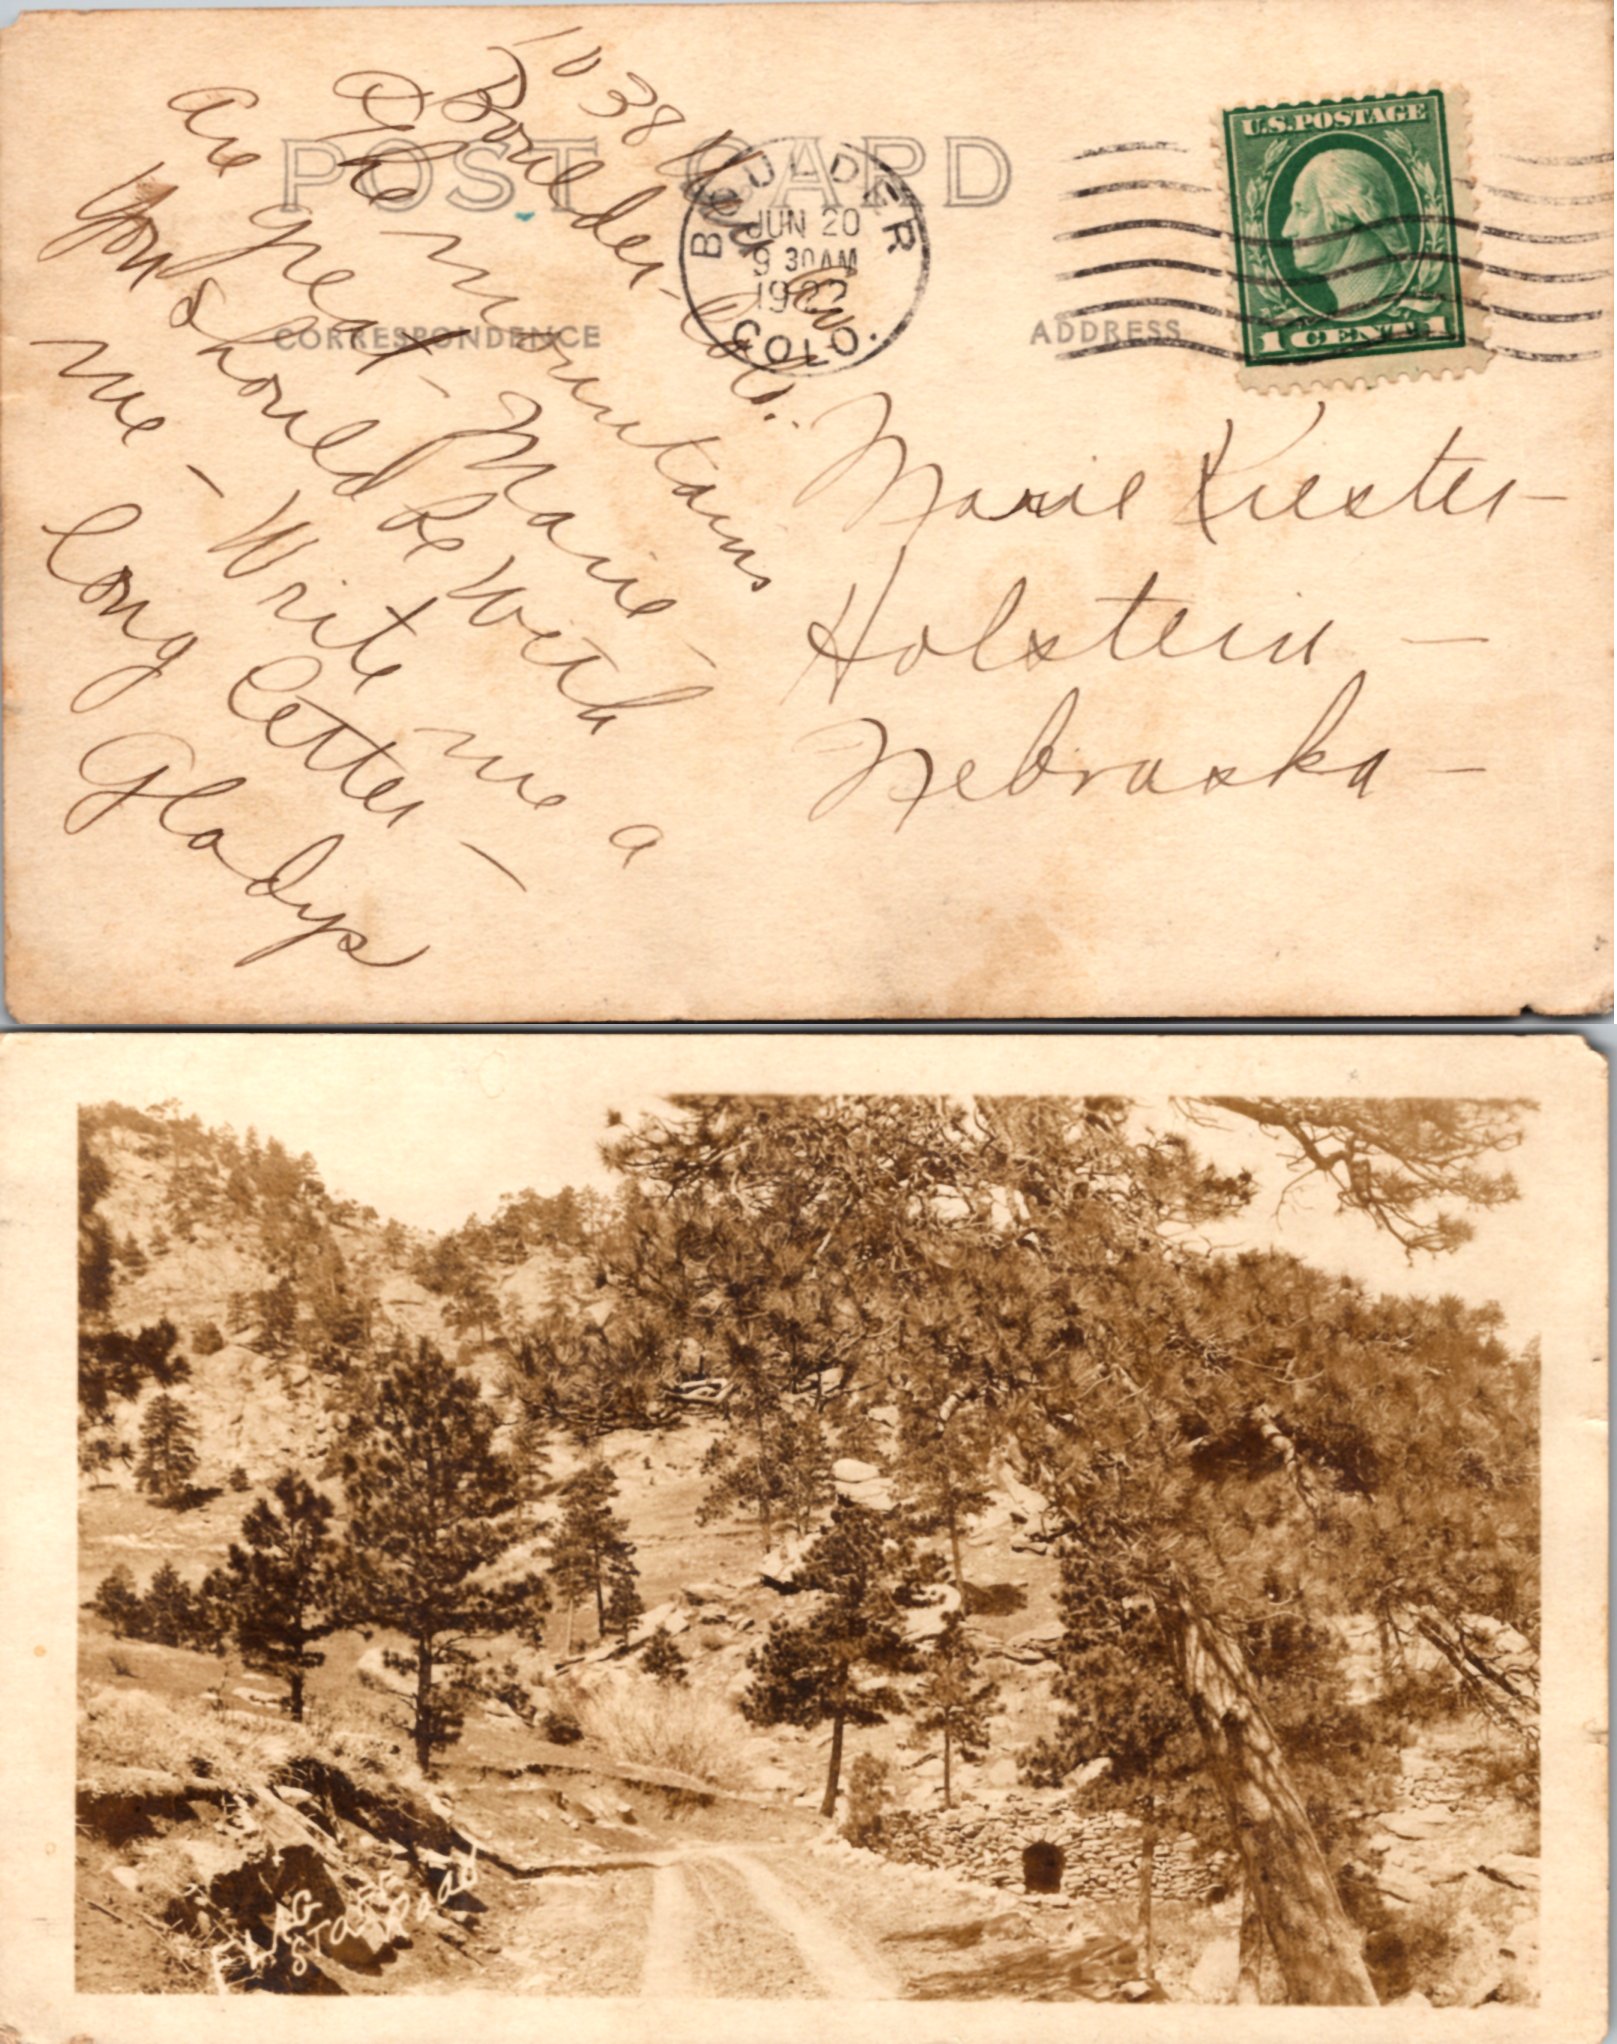 POST CARD
CORRESPONDENCE
ADDRESS
U.S. POSTAGE
1 CENT 1
BOULDER
JUN 20
9 30 AM
COLO.
1038
Boulder - Colo.
The mountains
are great - Marie -
You should be with
me - Write me a
long letter -
Gladys
Marie Kiester -
Holstein -
Nebraska -
FLAG
STAFF
Road